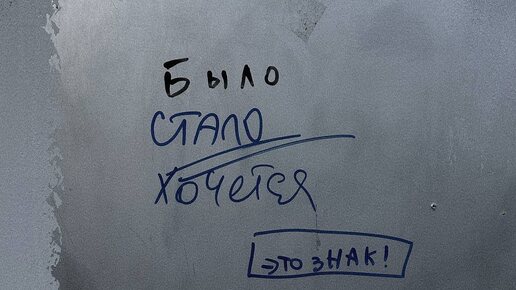 Было
СТАЛО
ХОЧЕТСЯ
ЭТО ЗНАК!